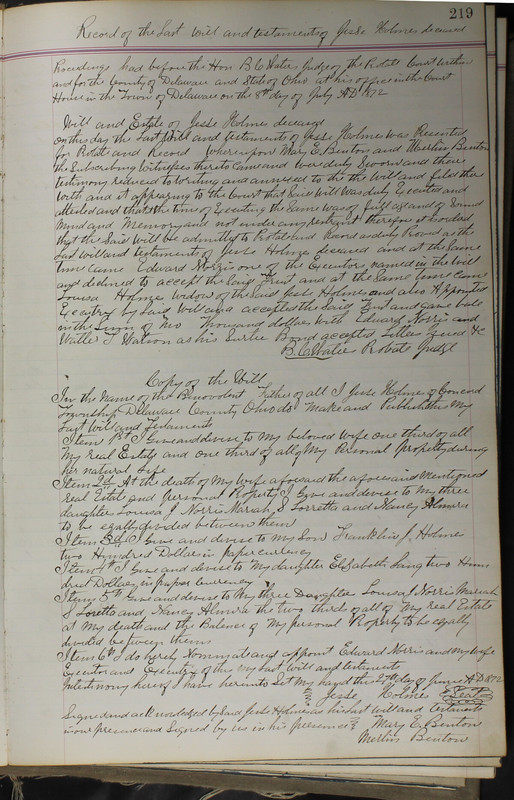 219
Record of the Last Will and testament of Jesse Holmes deceased
Proceedings had before the Hon B.C. Waters Judge of the Probate Court within
and for the County of Delaware and State of Ohio at his office in the Court
House in the Town of Delaware on the 8th day of July AD 1872
Will and Estate of Jesse Holmes deceased
On this day the Last Will and testament of Jesse Holmes was Presented
for Probate and Record whereupon Mary E. Benton and Merlin Benton
the Subscribing Witnesses thereto Came and were duly Sworn and their
testimony reduced to writing and annexed to the Will and filed there
with and it appearing to the Court that Said Will was duly Executed and
attested and that at the time of Executing the Same was of full age and of Sound
Mind and Memory and not under any restraint therefore it is ordered
that the Said Will be admitted to Probate and Record as duly Proved as the
Last will and testament of Jesse Holmes deceased and at the Same
time came Edward Norris one of the Executors named in the Will
and declined to accept the Said Trust and at the Same time came
Louisa Holmes widow of the Said Jesse Holmes and also Appointed
Executrix by Said Will and accepted the Said Trust and gave bond
in the Sum of Two Thousand dollars with Edward Norris and
T Watson as his Surties Bond accepted Letters Issued &c
B.C. Waters Probate Judge
Copy of the Will
In the Name of the Benevolent Father of all I Jesse Holmes of Concord
Township Delaware County Ohio do Make and Publish this My
Last Will and Testament
Item 1st I Give and devise to My beloved wife one third of all
My real Estate and one third of all of My Personal Property during
her natural life
Item 2d At the death of My Wife aforesaid the aforesaid Mentioned
real Estate and personal Property I Give and devise to My three
daughters Louisa J Norris Mariah S Loretta and Nancy Almira
to be equally divided between them
Item 3d I Give and devise to My Son Franklin J. Holmes
two Hundred Dollars in paper currency
Item 4th I Give and devise to My daughter Elizabeth Lang two Hun
dred Dollars in paper Currency
Item 5th Give and devise to My three Daughters Louisa J Norris Mariah
S Loretta and Nancy Almira the two thirds of all of My real Estate
at My death and the Balance of My personal Property to be equally
divided between them
Item 6th I do hereby Nominate and appoint Edward Norris and My wife
Executor and Executrix of this my Last Will and testament
In testimony hereof I have hereunto Set My hand this 27th day of June AD 1872
Jesse Holmes Seal
Signed and acknowledged by Said Jesse Holmes as his last will and testament
in our presence and Signed by us in his presence Mary E. Benton
Merlin Benton